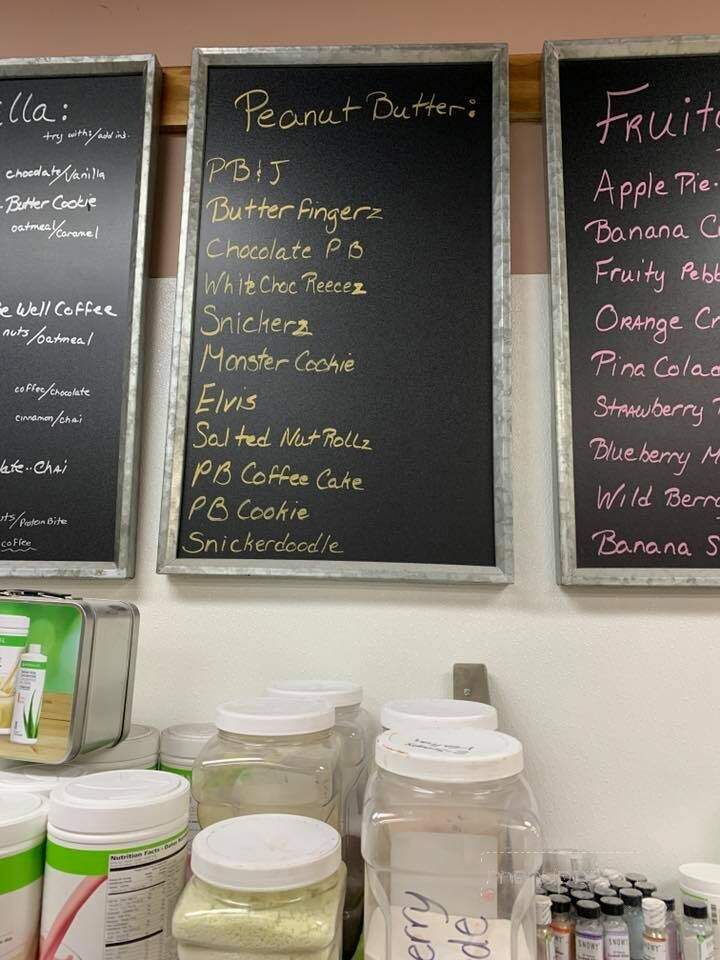 lla:
try withs/add ins.
chocolate/Vanilla
Butter Cookie
oatmeal/caramel
e Well Coffee
nuts/oatmeal
coffee/chocolate
cinnamon/chai
late--Chai
ts/Protein Bite
coffee
Peanut Butter:
PB & J
Butterfingerz
Chocolate PB
White Choc Reecez
Snickerz
Monster Cookie
Elvis
Salted Nut Rollz
PB Coffee Cake
PB Cookie
Snickerdoodle
Fruity
Apple Pie
Banana C
Fruity Pebb
Orange Cr
Pina Colad
Strawberry
Blueberry M
Wild Berr
Banana S
Nutrition Facts
erry
de
SNOWY
SNOWY